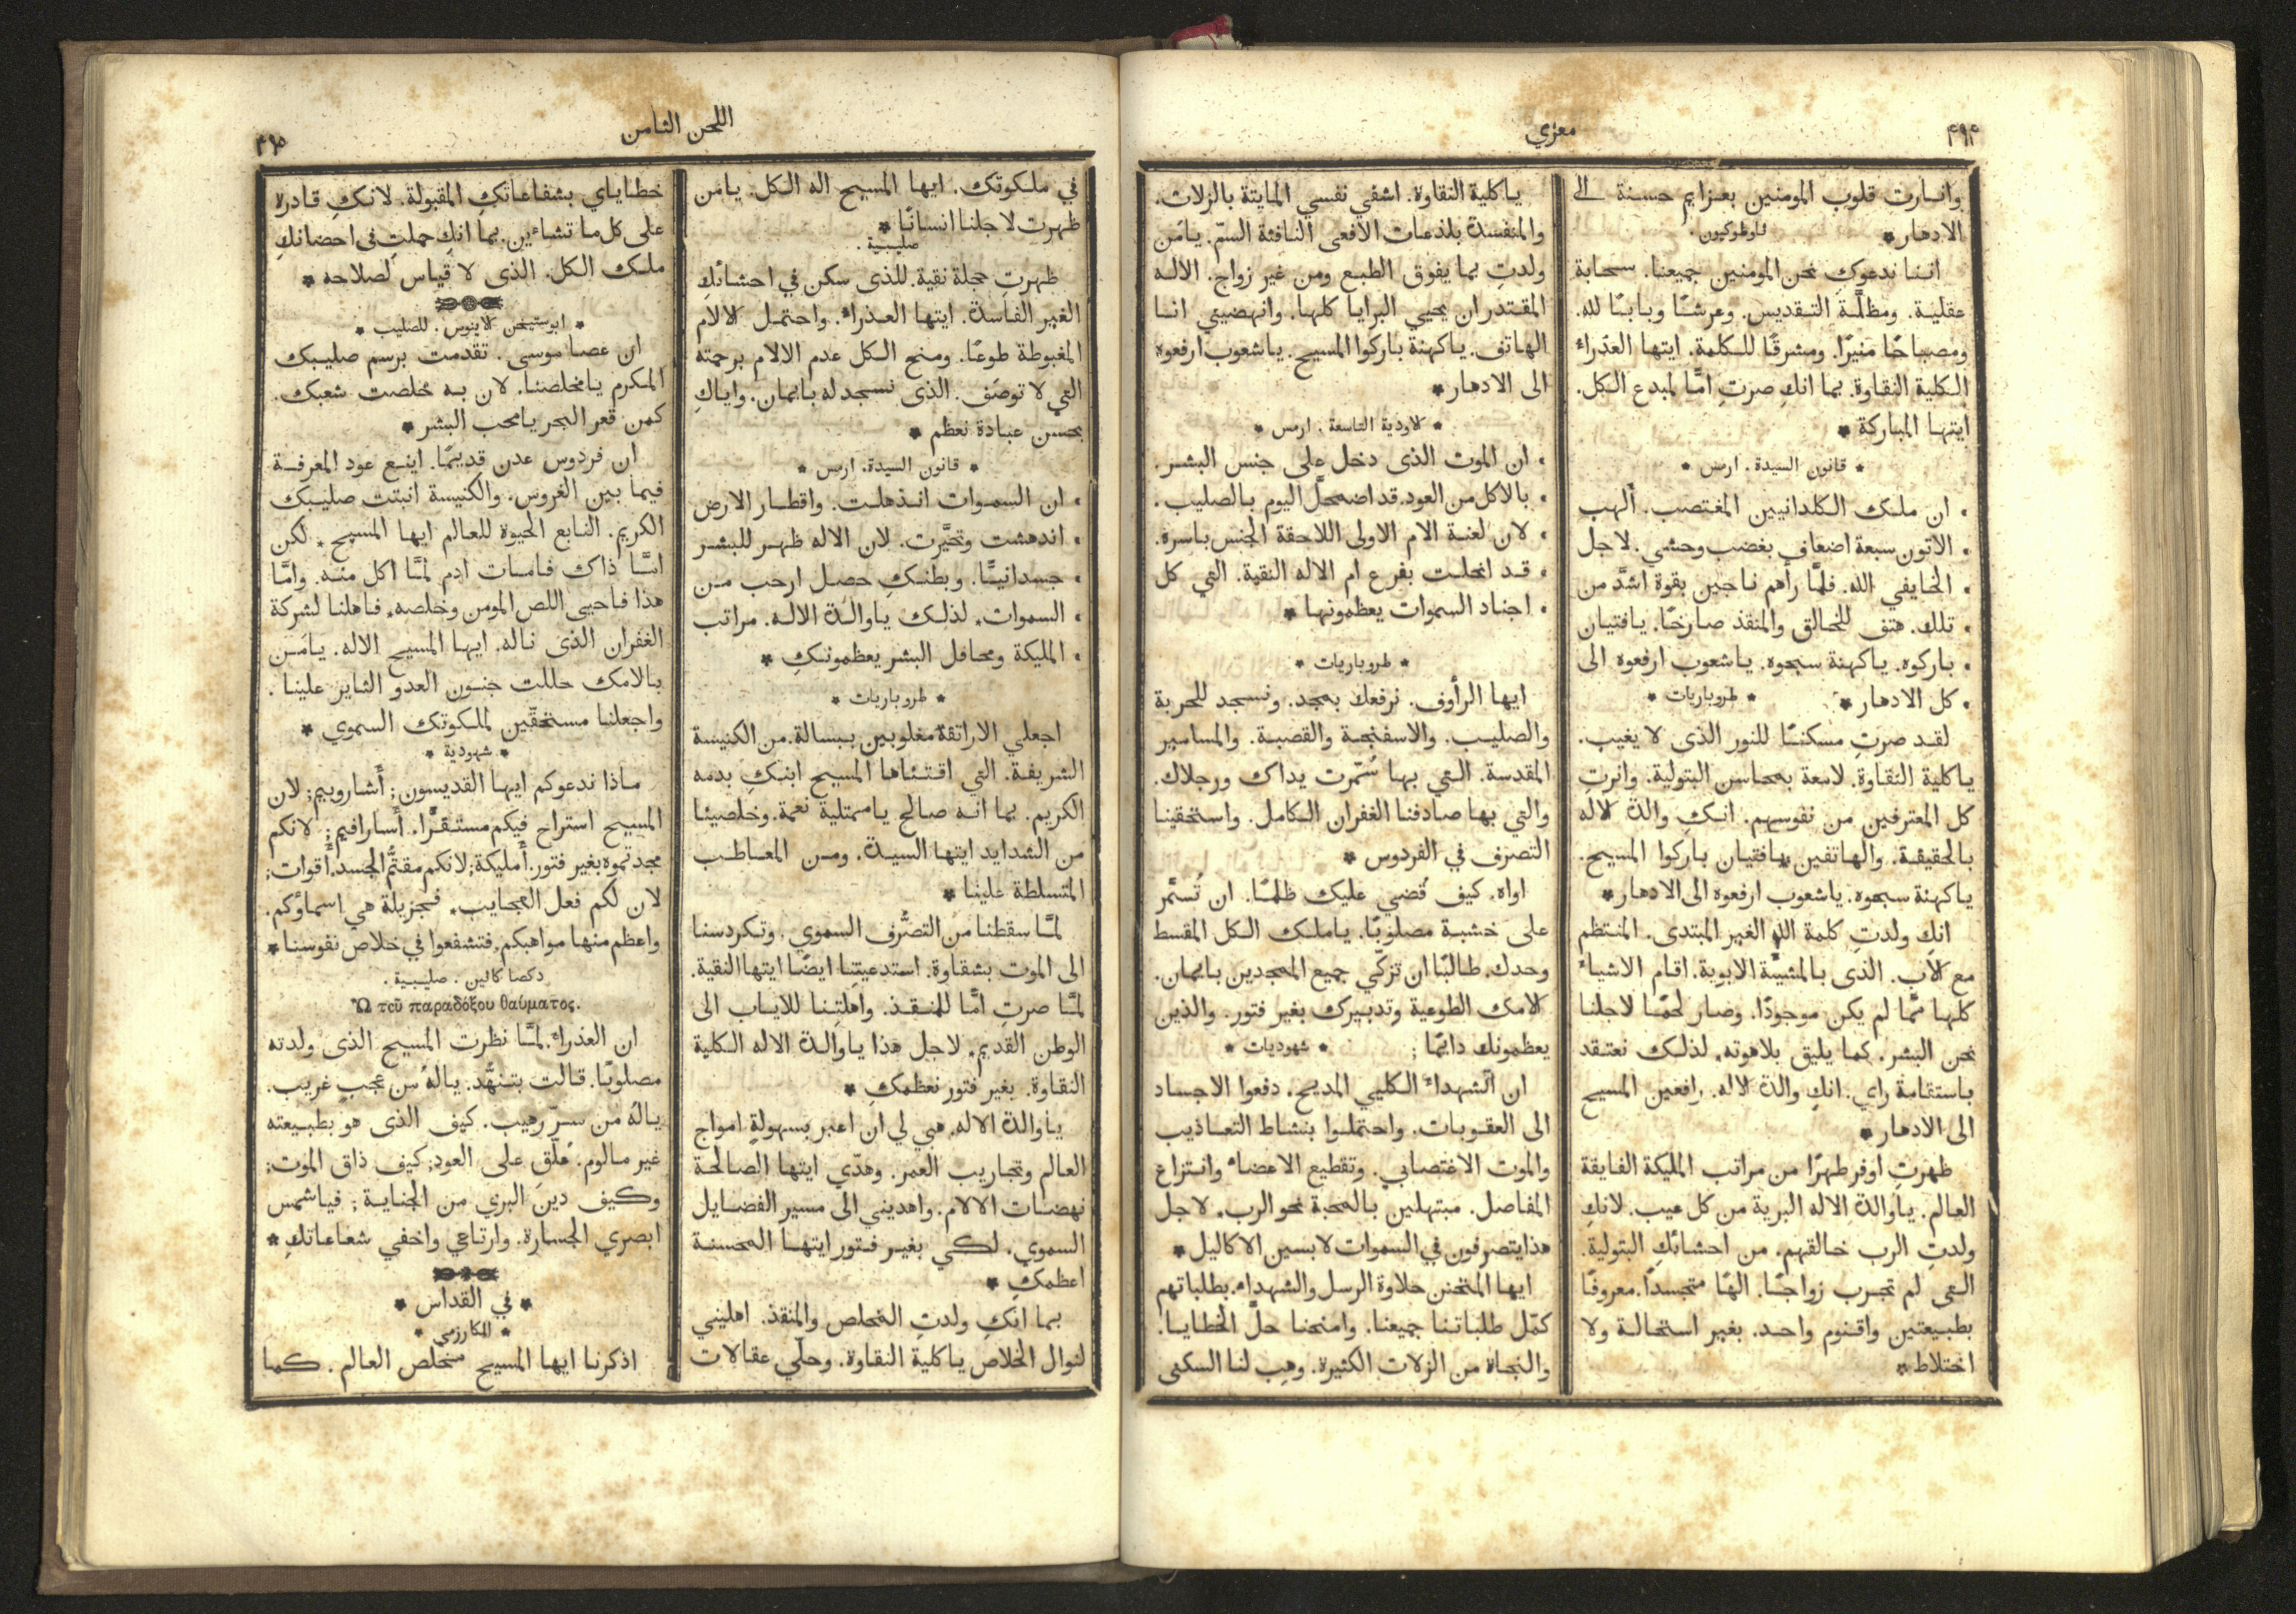 ٤٩٤
معزي
وانارت قلوب المومنين بعزايم حسنة الى
الادهار * ثاوطوكيون.
اننا ندعوكِ نحن المومنين جميعنا. سحابة
عقلية. ومظلَّةَ التقديس. وعرشًا وبابًا لله.
ومصباحًا منيرًا. ومشرقًا للكلمة. ايتها العذراء
الكلية النقاوة. بما انكِ صرتِ امًّا لمبدع الكل.
ايتها المباركة *
* قانون السيدة. ارمس *
. ان ملك الكلدانيين المغتصب. ألهب
. الاتون سبعة اضعاف بغضب وحشي. لاجل
. الخايفي الله. فلمَّا رأهم ناجين بقوة اشدَّ من
. تلك. هتف للخالق والمنقذ صارخًا. يافتيان
. باركوه. ياكهنة سبحوه. ياشعوب ارفعوه الى
. كل الادهار * * طروباريات *
لقد صرتِ مسكنًا للنور الذى لا يغيب.
ياكلية النقاوة. لامعة بمحاسن البتولية. وانرتِ
كل المعترفين من نفوسهم. انكِ والدة لاله
بالحقيقة. والهاتفين يافتيان باركوا المسيح.
ياكهنة سبحوه. ياشعوب ارفعوه الى الادهار *
انك ولدتِ كلمة الله الغير المبتدى. المنتظم
مع لاَب. الذى بالمشيَّة الابوية. اقام الاشياء
كلها ممَّا لم يكن موجودًا. وصار لحمًا لاجلنا
نحن البشر. كما يليق بلاهوته. لذلك نعتقد
باستقامة راي. انكِ والدة لاله. رافعين المسيح
الى الادهار *
ظهرتِ اوفر طهرًا من مراتب المليكة الفايقة
العالم. ياوالدة الاله البرية من كل عيب. لانكِ
ولدتِ الرب خالقهم. من احشائكِ البتولية.
التى لم تجرب زواجًا. الهًا متجسدًا. معروفًا
بطبيعتين واقنوم واحد. بغير استحالة ولا
اختلاط *
ياكلية النقاوة. اشفي نفسي المايتة بالزلات.
والمنفسدة بلدعات الافعى النافثة السمّ. يامَن
ولدتِ بما يفوق الطبع ومن غير زواج. الاله
المقتدر ان يحيي البرايا كلها. وانهضيني انا
الهاتف. ياكهنة باركوا المسيح. ياشعوب ارفعوه
الى الادهار *
* لاودية التاسعة. ارمس *
. ان الموت الذى دخل على جنس البشر.
. بالاكل من العود. قد اضمحلَّ اليوم بالصليب.
. لان لعنة الام الاولى اللاحقة الجنس باسره.
. قد انحلت بفرع ام الاله النقية. التي كل
. اجناد السموات يعظمونها *
* طروباريات *
ايها الرأوف. نرفعك بمجد. ونسجد للحربة
والصليب. والاسفنجة والقصبة. والمسامير
المقدسة. التي بها سُمّرت يداك ورجلاك.
والتي بها صادفنا الغفران الكامل. واستحقينا
التصرف في الفردوس *
اواه. كيف قُضي عليك ظلمًا. ان تُسمَّر
على خشبة مصلوبًا. ياملك الكل المقسط
وحدك. طالبًا ان تزكّي جميع الممجدين بايمان.
لامك الطوعية وتدبيرك بغير فتور. والذين
يعظمونك دايمًا ; * شهوديات *
ان الشهداء الكليي المديح. دفعوا الاجساد
الى العقوبات. واحتملوا بنشاط التعاذيب
والموت الاغتصابي. وتقطيع الاعضاء وانتزاع
المفاصل. مبتهلين بالمحبة نحو الرب. لاجل
هذا يتصرفون في السموات لابسين الاكاليل *
ايها المتحنن حلاوة الرسل والشهداء. بطلباتهم
كمّل طلباتنا جميعنا. وامنحنا حلَّ الخطايا.
والنجاة من الزلات الكثيرة. وهب لنا السكنى
اللحن الثامن
٤٩٥
في ملكوتك. ايها المسيح اله الكل. يامَن
ظهرت لاجلنا انسانًا *
صليبية.
ظهرتِ حجلة نقية. للذى سكن في احشائكِ
الغير الفاسدة. ايتها العذراء. واحتمل لالام
المغبوطة طوعًا. ومنح الكل عدم الالام برحمته
التي لا توصَف. الذى نسجد له بايمان. واياكِ
بحسن عبادة نعظم *
* قانون السيدة. ارمس *
. ان السموات انذهلت. واقطار الارض
. اندهشت وتحيَّرت. لان الاله ظهر للبشر
. جسدانيًّا. وبطنكِ حصل ارحب من
. السموات. لذلك ياوالدة الاله. مراتب
. المليكة ومحافل البشر يعظمونكِ *
* طروباريات *
اجعلي الاراتقة مغلوبين ببسالة. من الكنيسة
الشريفة. التي اقتناها المسيح ابنكِ بدمه
الكريم. بما انه صالح ياممتلية نعمة. وخلصينا
من الشدايد ايتها السيدة. ومن المعاطب
المتسلطة علينا *
لمَّا سقطنا من التصرُّف السموي. وتكردسنا
الى الموت بشقاوة. استدعيتِنا ايضًا ايتها النقية.
لمَّا صرتِ امًّا للمنقذ. واهلتِنا للاياب الى
الوطن القديم. لاجل هذا ياوالدة الاله الكلية
النقاوة. بغير فتور نعظمكِ *
ياوالدة الاله. هبي لي ان اعبر بسهولةٍ امواج
العالم وتجاريب العمر. وهدّي ايتها الصالحة
نهضات الالام. واهديني الى مسير الفضايل
السموي. لكي بغير فتور ايتها المحسنة
اعظمكِ *
بما انكِ ولدتِ المخلص والمنقذ. اهليني
لنوال الخلاص ياكلية النقاوة. وحلّي عقالات
خطاياي بشفاعاتكِ المقبولة. لانكِ قادرة
على كل ما تشاءين. بما انكِ حملتِ في احضانكِ
ملك الكل. الذى لا قياس لصلاحه *
* ابوستيخن لاينوس. للصليب *
ان عصا موسى. تقدمت برسم صليبك
المكرم يامخلصنا. لان به خلصت شعبك.
كمن قعر البحر يامحب البشر *
ان فردوس عدن قديمًا. اينع عود المعرفة
فيما بين الغروس. والكنيسة انبتت صليبك
الكريم. النابع الحيوة للعالم ايها المسيح. لكن
امَّا ذاك فامات ادم لمَّا اكل منه. وامَّا
هذا فاحيى اللص المومن وخلصه. فاهلنا لشركة
الغفران الذى ناله. ايها المسيح الاله. يامَن
بالامك حللت جنون العدو الثاير علينا.
واجعلنا مستحقّين لملكوتك السموي *
* شهودية *
ماذا ندعوكم ايها القديسون; أشاروبيم; لان
المسيح استراح فيكم مستقرًّا. أسارافيم; لانكم
مجدتموه بغير فتور. أمليكة; لانكم مقتُّم الجسد. أقوات;
لان لكم فعل العجايب. فجزيلة هي اسماؤكم.
واعظم منها مواهبكم. فتشفعوا في خلاص نفوسنا *
دكصا كانين. صليبية.
Ὢ τοῦ παραδόξου θαύματος.
ان العذراء. لمَّا نظرت المسيح الذى ولدته
مصلوبًا. قالت بتنهُّد. يالهُ من عجبٍ غريب.
يالهُ من سرّ رهيب. كيف الذى هو بطبيعته
غير مالوم. عُلّق على العود; كيف ذاق الموت;
وكيف دينَ البري من الجناية; فياشمس
ابصري الجسارة. وارتاعي واخفي شعاعاتكِ *
* في القداس *
* المكارزمي *
اذكرنا ايها المسيح مخلص العالم. كما